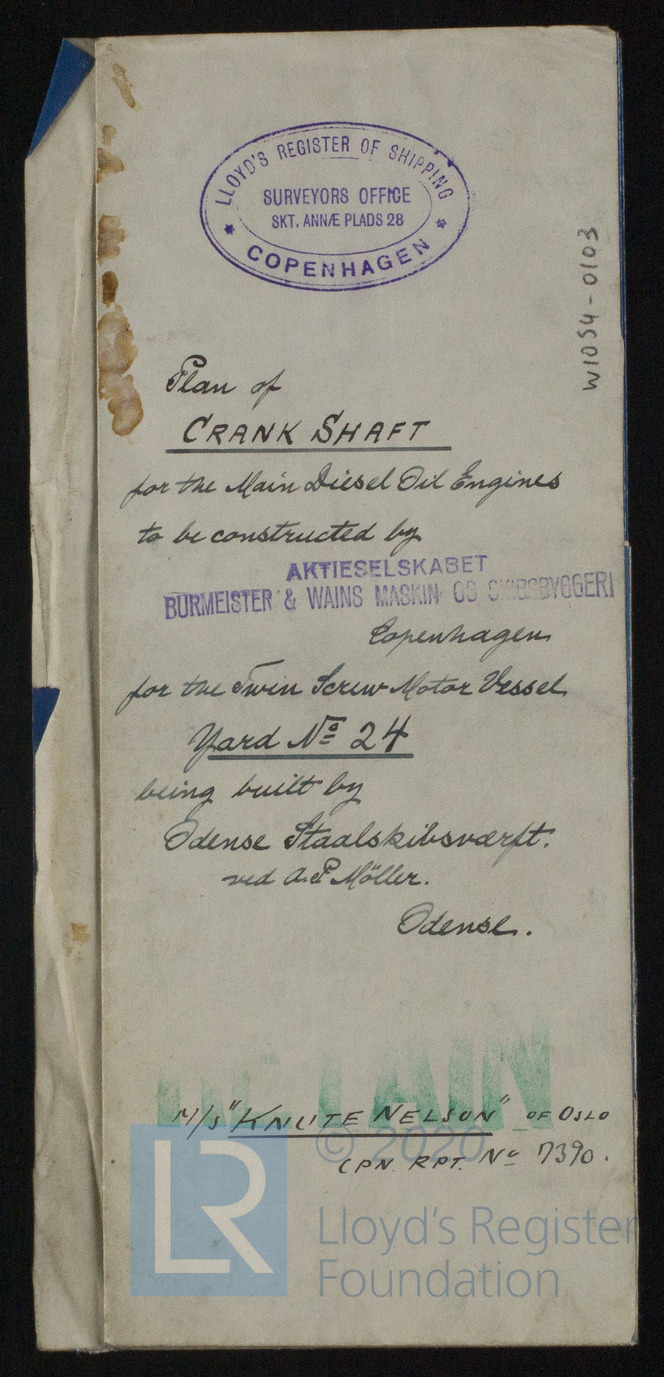 LLOYD'S REGISTER OF SHIPPING
SURVEYORS OFFICE
SKT. ANNÆ PLADS 28
COPENHAGEN
W1054-0103
Plan of
CRANK SHAFT
for the Main Diesel Oil Engines
to be constructed by
AKTIESELSKABET
BURMEISTER & WAINS MASKIN- OG SKIBSBYGGERI
Copenhagen
for the Twin Screw Motor Vessel
Yard No 24
being built by
Odense Staalskibsværft.
ved A.P. Möller.
Odense.
M/S "KNUTE NELSON" OF OSLO
CPN. RPT. No 7390.
© 2020
LR
Lloyd's Register
Foundation